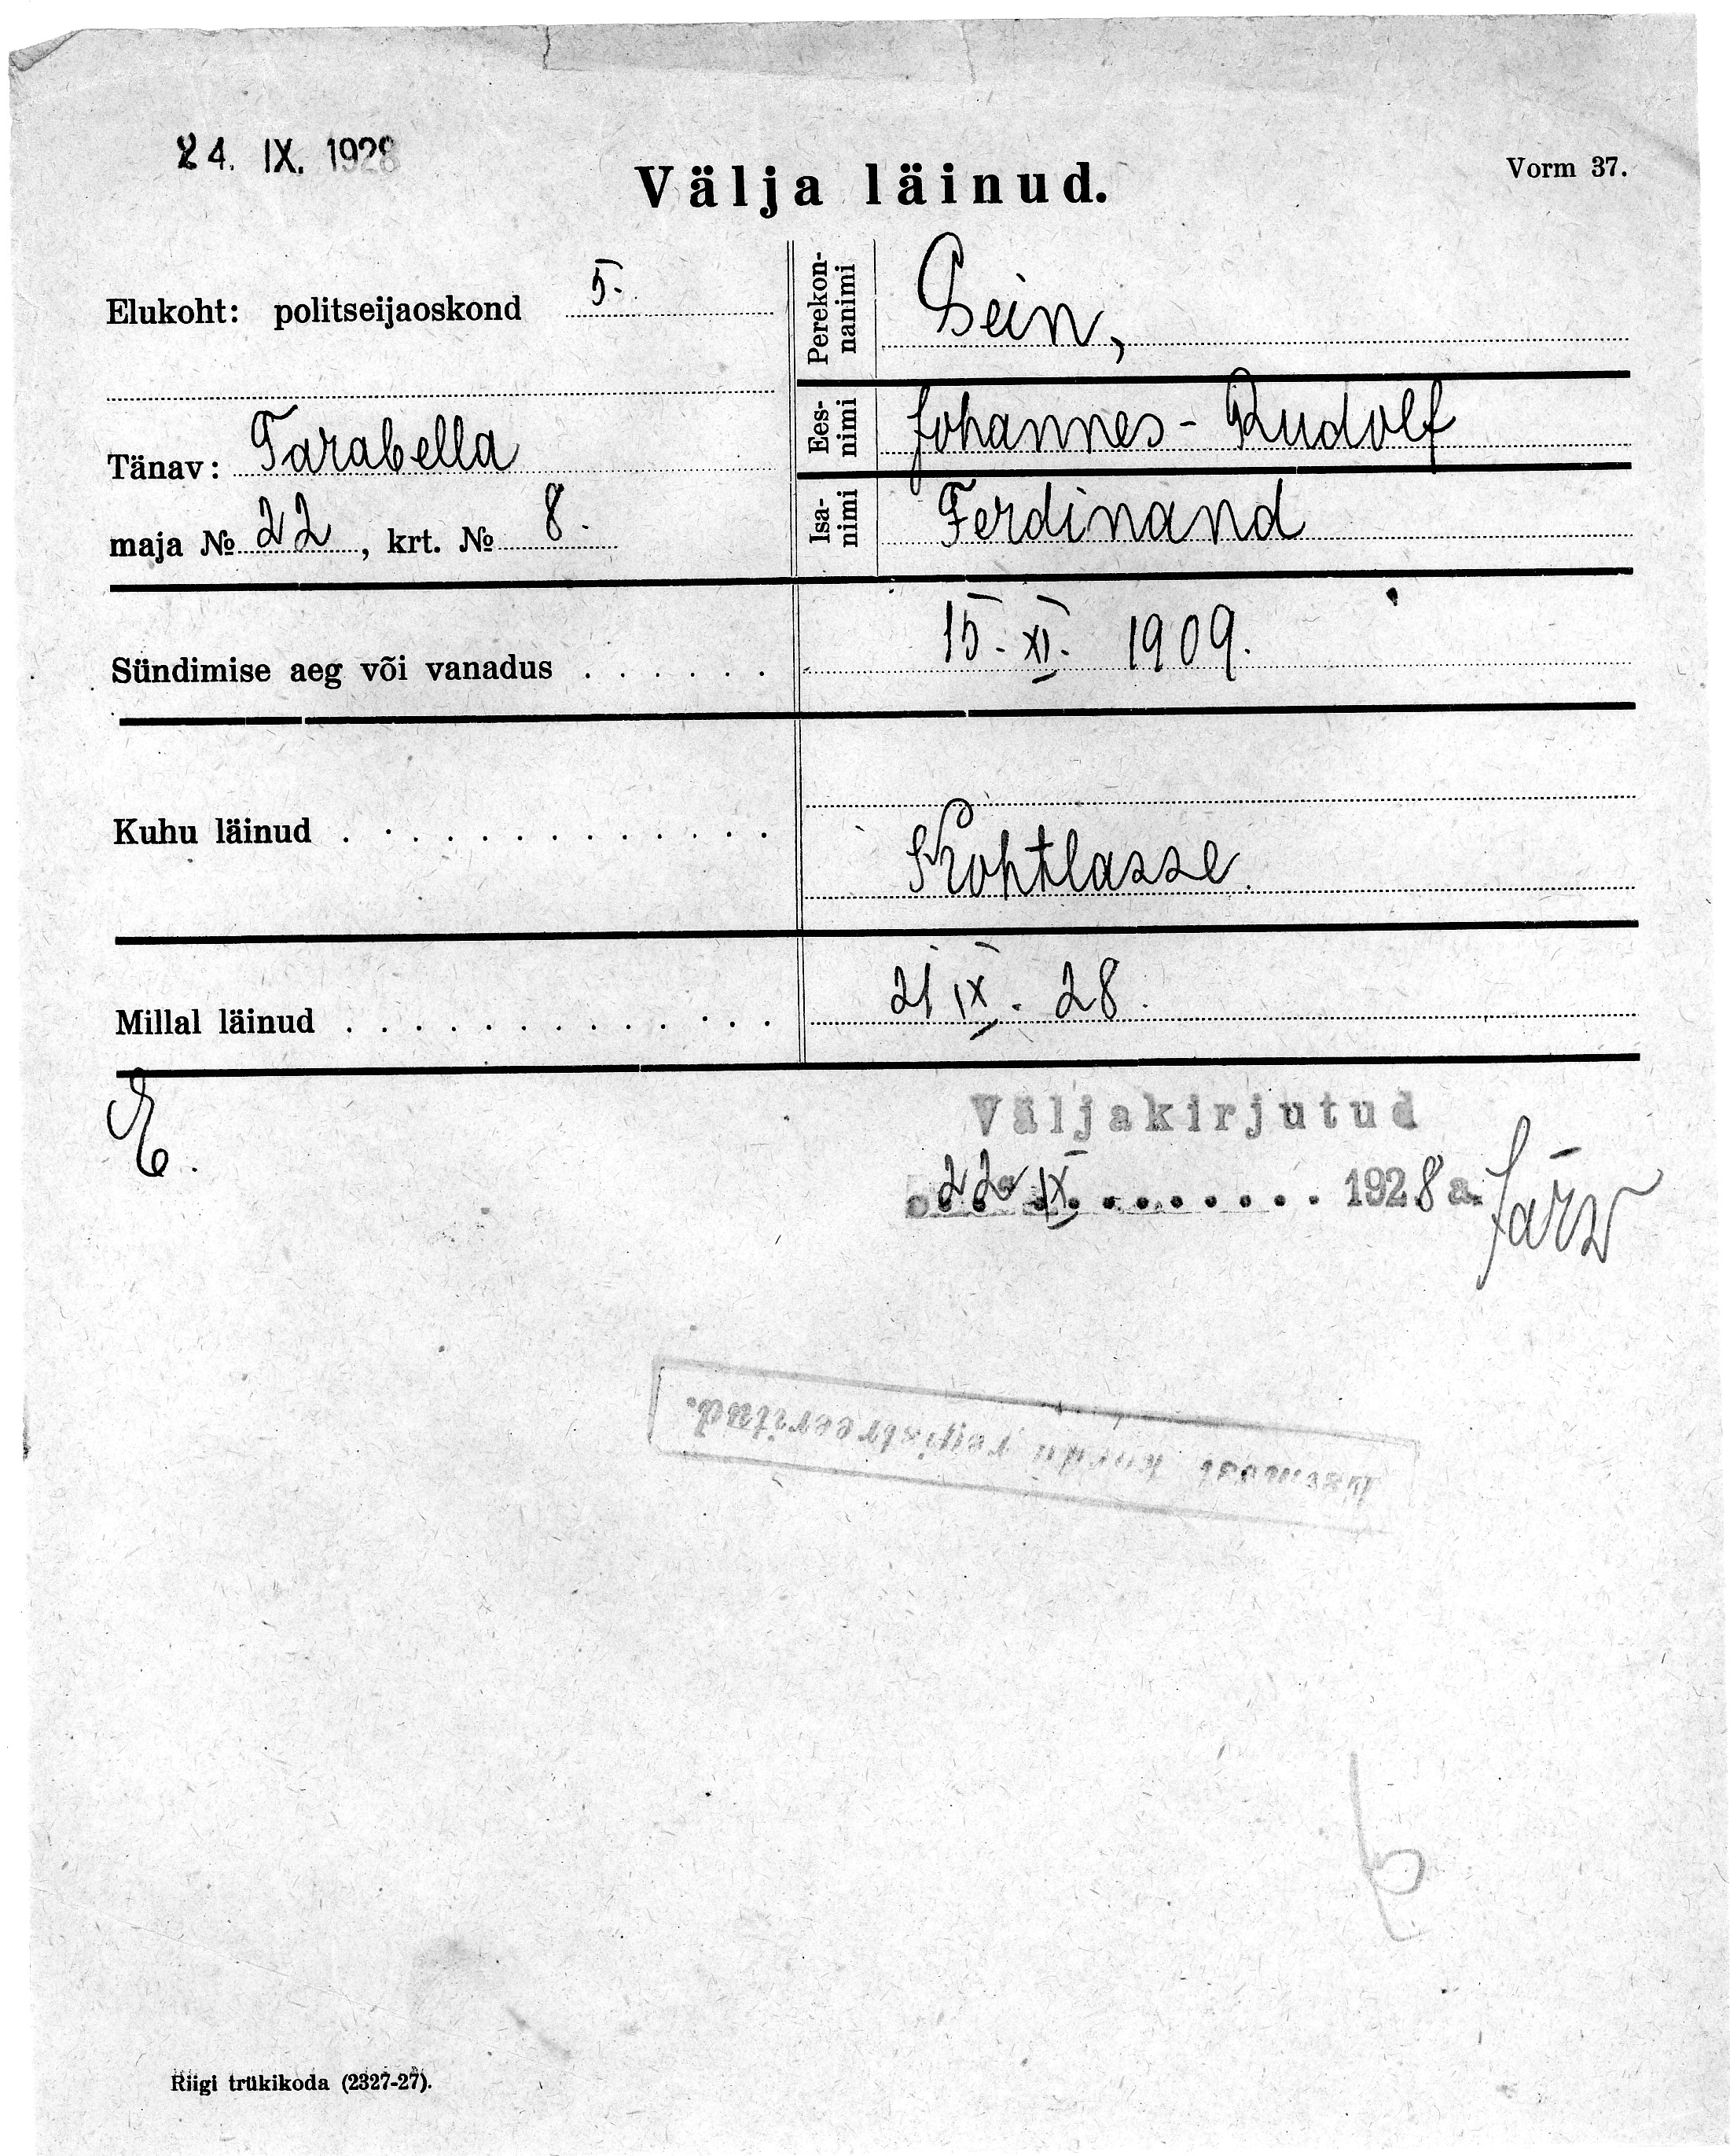 24. IX. 1928
Vorm 37.
Välja läinud.
Elukoht: politseijaoskond 5.
Tänav: Tarabella
maja № 22, krt. № 8.
Perekon-
nanimi
Sein,
Ees-
nimi
Johannes-Rudolf
Isa-
nimi
Ferdinand
Sündimise aeg või vanadus . . . . . . 15. XI. 1909.
Kuhu läinud . . . . . . . . . . . . . Kohtlasse.
Millal läinud . . . . . . . . . . . . . 21 IX. 28.
Väljakirjutud
22 IX. . . . . . . . 1928 a. Järv
kordu registreeritud.
Riigi trükikoda (2327-27).